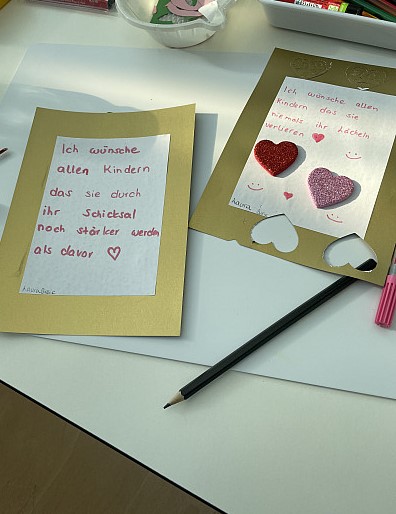 Ich wünsche
allen Kindern
das sie durch
ihr Schicksal
noch stärker werden
als davor ♡
Ich wünsche allen
Kindern das sie
niemals ihr Lächeln
verlieren ♥